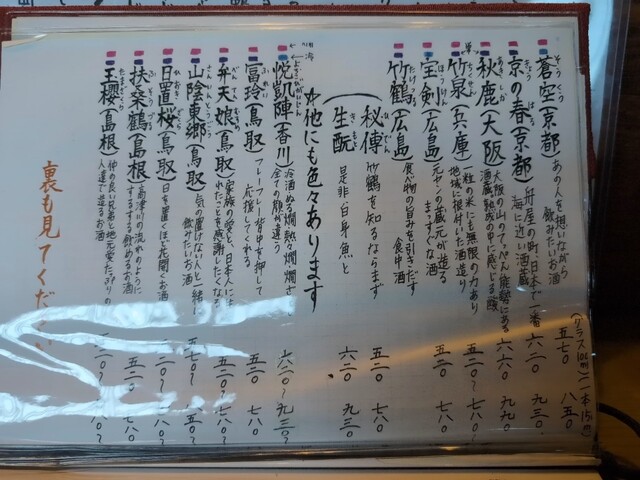 (グラス100㎖) 一本150㎖
蒼空(京都) あの人を想いながら飲みたいお酒 五七〇 八五〇
京の春(京都) 舟屋の町、日本で一番海に近い酒蔵 六二〇 九三〇
秋鹿(大阪) 大阪の山のてっぺん能勢にある酒蔵 熟成の中に感じる酸 六六〇 九九〇
竹泉(兵庫) 一粒の米にも無限の力あり 地域に根付いた酒造り 五二〇〜 七八〇〜
宝剣(広島) 元ヤンの蔵元が造るまっすぐな酒 五二〇 七八〇
竹鶴(広島) 食べ物の旨みを引きだす食中酒
秘傳 竹鶴を知るならまず 五二〇 七八〇
生酛 是非、白身魚と 六二〇 九三〇
☆他にも色々あります
悦凱陣(香川) 冷酒、ぬる燗、熱燗 全ての顔が違う 六二〇〜 九三〇〜
冨玲(鳥取) フレーフレーと背中を押して応援してくれる 五二〇 七八〇
弁天娘(鳥取) 家族の愛と、日本人に生まれたことを感謝したくなる 五二〇〜 七八〇〜
山陰東郷(鳥取) 気の置けない人と一緒に飲みたいお酒 五七〇〜
日置桜(鳥取) 日を置くほど花開くお酒
扶桑鶴(島根) 高津川の流れのようにするする飲めるお酒
玉櫻(島根) 仲の良い兄弟と地元愛たっぷりの人達で造るお酒
裏も見てください